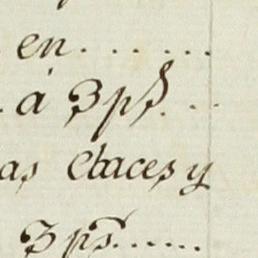 en......
á 3 ps...
as Ebaces y
3 ps......